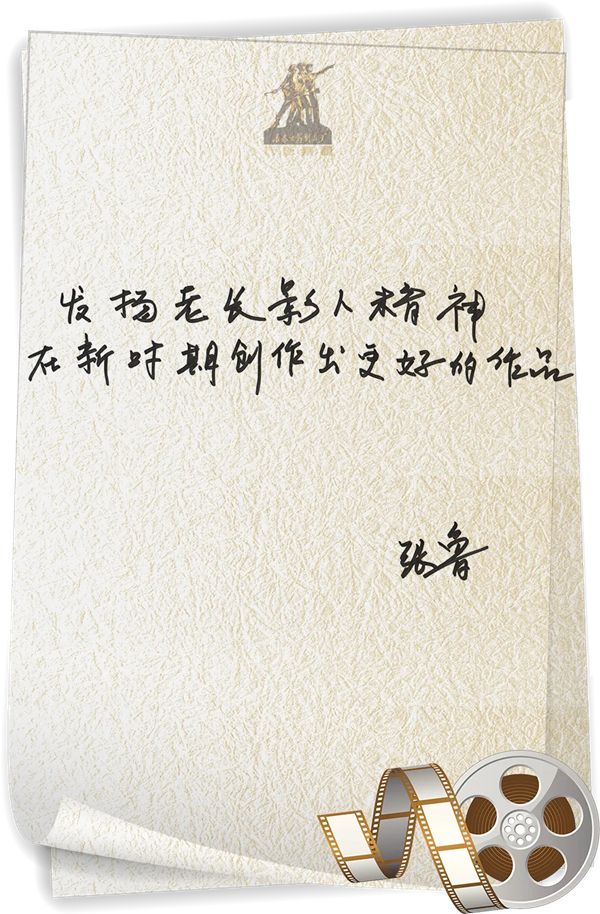 发扬老长影人精神
在新时期创作出更好的作品
张鲁